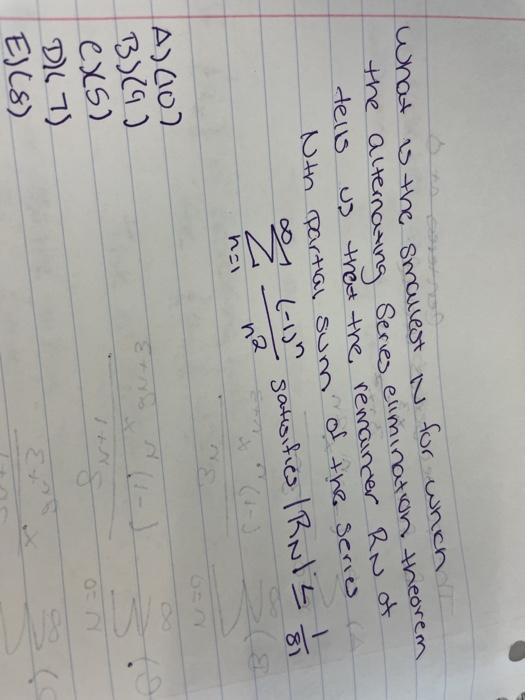 What is the smallest N for which
the alternating Series elimination theorem
tells us that the remainder RN of
Nth partial sum of the series
∞
∑ (-1)^n / n² satisfies |RN| ≤ 1/81
n=1
A) (10)
B) (9)
C) (5)
D) (7)
E) (8)